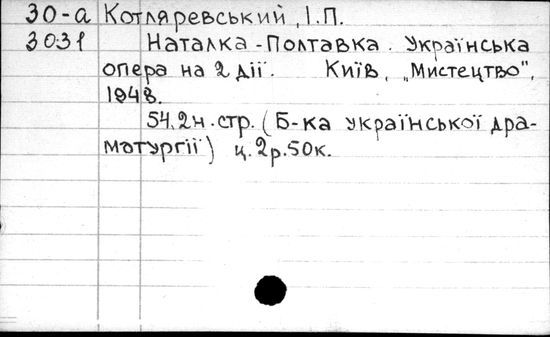 30-а Котляревський, І.П.
3031 Наталка-Полтавка. Українська
опера на 2 дії. Київ, „Мистецтво",
1948.
54, 2н. стр. (Б-ка української дра-
матургії) ц. 2р. 50к.